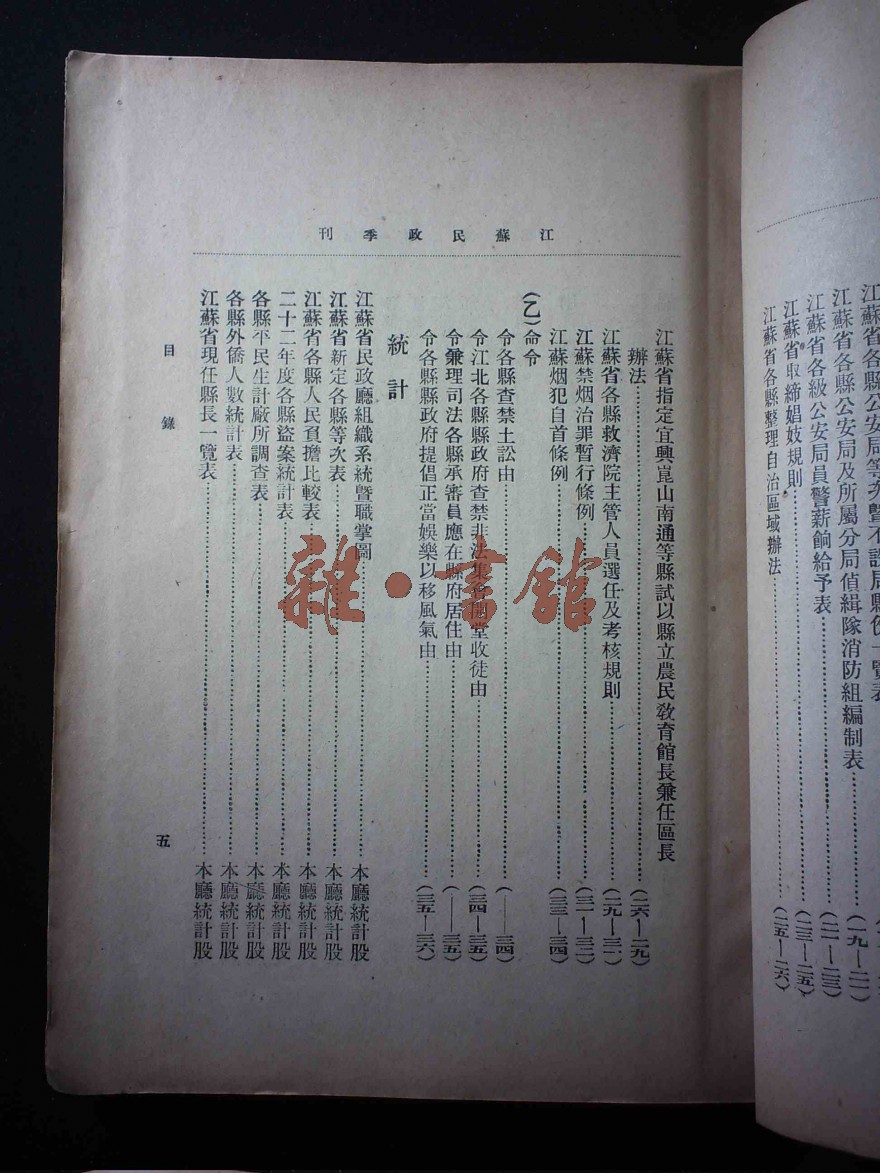 江蘇省各縣公安局等次暨不設局縣份一覽表
江蘇省各縣公安局及所屬分局偵緝隊消防組編制表……(一九—二一)
江蘇省各級公安局員警薪餉給予表……(二一—二三)
江蘇省取締娼妓規則……(二三—二五)
江蘇省各縣整理自治區域辦法……(二五—二六)
江蘇民政季刊
江蘇省指定宜興崑山南通等縣試以縣立農民教育館長兼任區長
辦法……(二六—二九)
江蘇省各縣救濟院主管人員選任及考核規則……(二九—三一)
江蘇禁烟治罪暫行條例……(三一—三二)
江蘇烟犯自首條例……(三三—三四)
(乙)命令
令各縣查禁土訟由……(——三四)
令江北各縣縣政府查禁非法集會開堂收徒由……(三四—三五)
令兼理司法各縣承審員應在縣府居住由……(——三五)
令各縣縣政府提倡正當娛樂以移風氣由……(三五—三六)
統計
江蘇省民政廳組織系統暨職掌圖……本廳統計股
江蘇省新定各縣等次表……本廳統計股
江蘇省各縣人民負擔比較表……本廳統計股
二十二年度各縣盜案統計表……本廳統計股
各縣平民生計廠所調查表……本廳統計股
各縣外僑人數統計表……本廳統計股
江蘇省現任縣長一覽表……本廳統計股
目錄
五
雜·書館